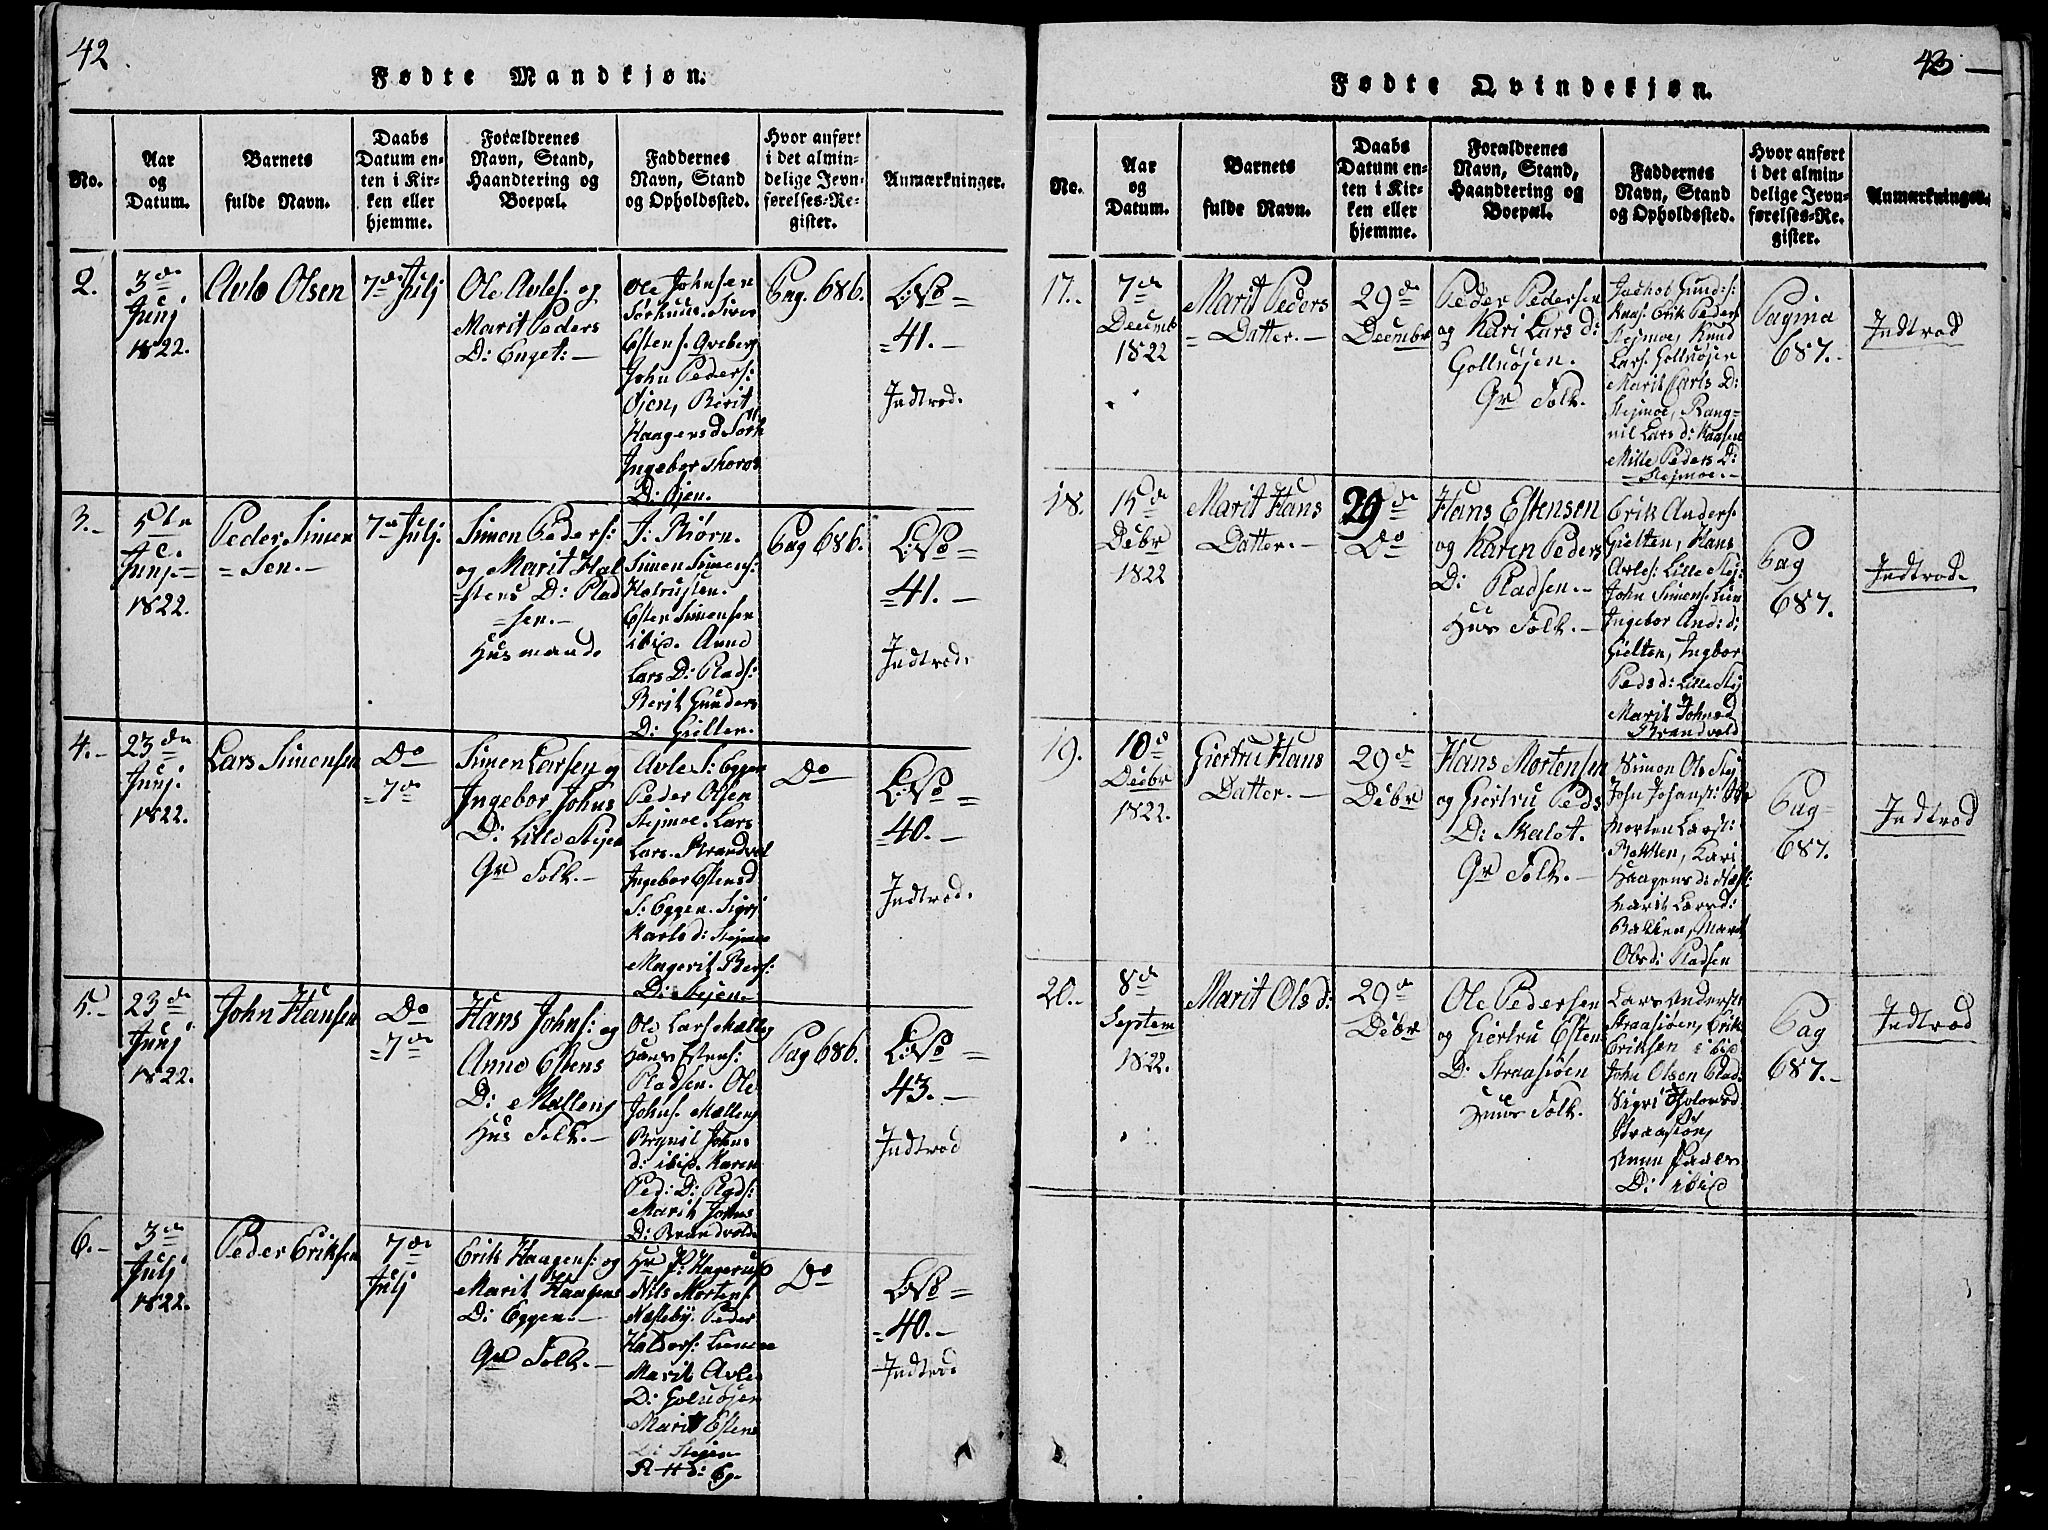 42.
Fødte Mandkjøn.
No.
Aar
og
Datum.
Barnets
fulde Navn.
Daabs
Datum en-
ten i Kir-
ken eller
hjemme.
Forældrenes
Navn, Stand,
Haandtering og
Boepæl.
Faddernes
Navn, Stand
og Opholdssted.
Hvor anført
i det almin-
delige Jevn-
førelses-Re-
gister.
Anmærkninger.
2.
3de
Junj
1822.
Avle Olsen
7de Julj
Ole Avles. og
Marit Peders
D: Enget: —
Ole Johnsen
Estens.
John Peders:
Øjen, Berit
Haagensd
Ingebor
D: Øjen.
Pag. 686.
=41.—
Indtrod.
3.—
5te
Junj.—
1822.
Peder Simen
=Sen.—
7de Julj.
Simen Peders:
og Marit Hal
=stens D: Plad
=sen.—
Husmand.
J: Biørn.
Simen Simens:
Esten Simensen
ibid. Anne
Lars D: Plads:
Berit Gunders
D: Gielten.
Pag 686.
=41.—
Indtrod.
4.—
23de
Junj.
1822.
Lars Simensen
Do
=7de
Simen Larsen og
Ingebor Johns
D: Lille Stejen
Gr Folk.—
Avle S: Eggen
Peder Olsen
Stejmoe. Lars
Lars. Strandvol
Ingebor Estensd
S: Eggen. Sigri
Karlsd: Stejmoe
Magerit Bers:
D: Stejen.
Do
=40.—
Indtrod.
5.—
23de
Junj
1822.
John Hansen
Do
=7de
Hans Johns: og
Anne Estens
D: Mælleng
Hus Folk.—
Ole Lars Mælleg
Hans Estens:
Pladsen. Ole
Johns. Mælleng
Johns
d: ibid. Karen
Ped: D: Plads:
Marit Johns
D: Brandvold
Pag 686.
43.—
Indtrod
6.—
3de
Julj
1822.
Peder Eriksen
7de
Julj
Erik Haagens: og
Marit Haagens
D: Eggen.—
Gr Folk.—
Hr P:
Nils Mortens
Næsteby. Peder
Haldors:
Marit Avle
D:
Marit Estens
D: Stejen
Do
=40.—
Indtrod
43
Fødte Qvindekjøn.
No.
Aar
og
Datum.
Barnets
fulde Navn.
Daabs
Datum en-
ten i Kir-
ken eller
hjemme.
Forældrenes
Navn, Stand,
Haandtering og
Boepæl.
Faddernes
Navn, Stand
og Opholdssted.
Hvor anført
i det almin-
delige Jevn-
førelses-Re-
gister.
Anmærkninger.
17.
7de
Decemb
1822
Marit Peders
=Datter.—
29de
Decembr
Peder Pedersen
og Kari Lars d:
Golluøjen.
Gr Folk.
Erik Peders
Stejmoe, Knud
Lars: Golluøjen
Marit Carls D:
Stejmoe, Rang=
nil Lars d:
Mille Peders D:
=Stejmoe.—
Pagina
687.—
Indtrod
18.
15de
Debr
1822
Marit Hans
Datter.—
29de
Do
Hans Estensen
og Karen Peders
D: Pladsen.—
Huus Folk.—
Erik Anders.
Gielten, Hans
Avles: Lille Stej:
John Simens: Lien
Ingebor And: d:
Gielten, Ingbor
Peds d: Lille Stej
Marit Johnsd
Brandvold
Pag
687.
Indtrod.
19.
10de
Debr
1822.
Giertru Hans
Datter.—
29de
Debr
Hans Mortensen
og Giertru Peds
D: Skalet.
Gr Folk.—
Simon Ols Stej
John Johans:
Morten Lars:
Bakken, Kari
Haagens d:
Marit Larsd:
Bakken, Marit
Olsd: Pladsen
Pag=
687.
Indtrod
20.—
8de
Septem
1822.
Marit Ols d:
29de
Debr
Ole Pedersen
og Giertru Esten
D: Straasiøen
Huus Folk.
Lars Anders:
Straasiøen, Erik
Eriksen ibid
John Olsen Plad:
Sigri
Straasiøn,
Anne Paals
D: ibid
Pag
687.—
Indtrod